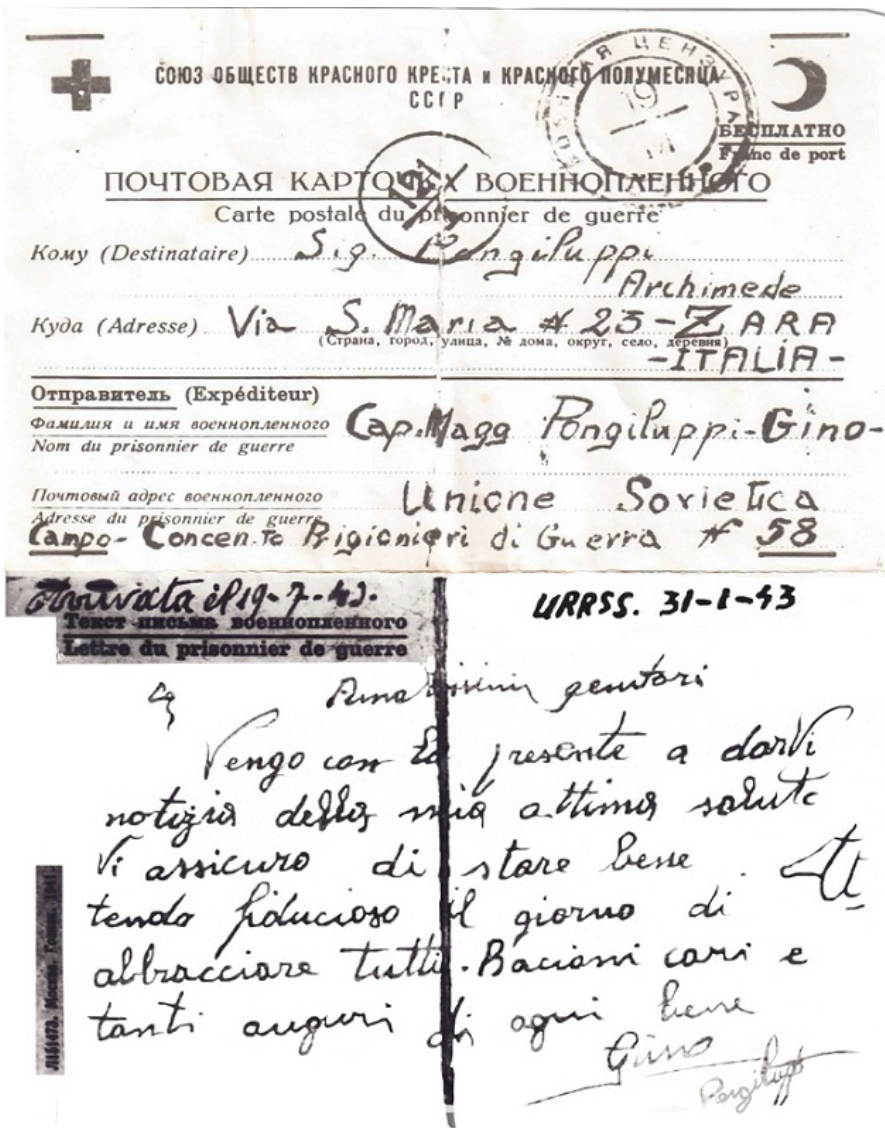 СОЮЗ ОБЩЕСТВ КРАСНОГО КРЕСТА и КРАСНОГО ПОЛУМЕСЯЦА
СССР
ВОЕННАЯ ЦЕНЗУРА
БЕСПЛАТНО
Franc de port
ПОЧТОВАЯ КАРТОЧКА ВОЕННОПЛЕННОГО
Carte postale du prisonnier de guerre
Кому (Destinataire) Sig. Pongiluppi
Archimede
Куда (Adresse) Via S. Maria # 23 - ZARA
(Страна, город, улица, № дома, округ, село, деревня)
- ITALIA -
Отправитель (Expéditeur)
Фамилия и имя военнопленного Cap. Magg Pongiluppi - Gino -
Nom du prisonnier de guerre
Почтовый адрес военнопленного Unione Sovietica
Adresse du prisonnier de guerre
Campo - Concen.to Prigionieri di Guerra # 58
Arrivata il 19-7-43.
URRSS. 31-1-43
Текст письма военнопленного
Lettre du prisonnier de guerre
Amatissimi genitori
Vengo con la presente a darVi
notizia della mia ottima salute
Vi assicuro di stare bene At
tendo fiducioso il giorno di
abbracciare tutti. Bacioni cari e
tanti auguri di ogni bene
Gino
Pongiluppi